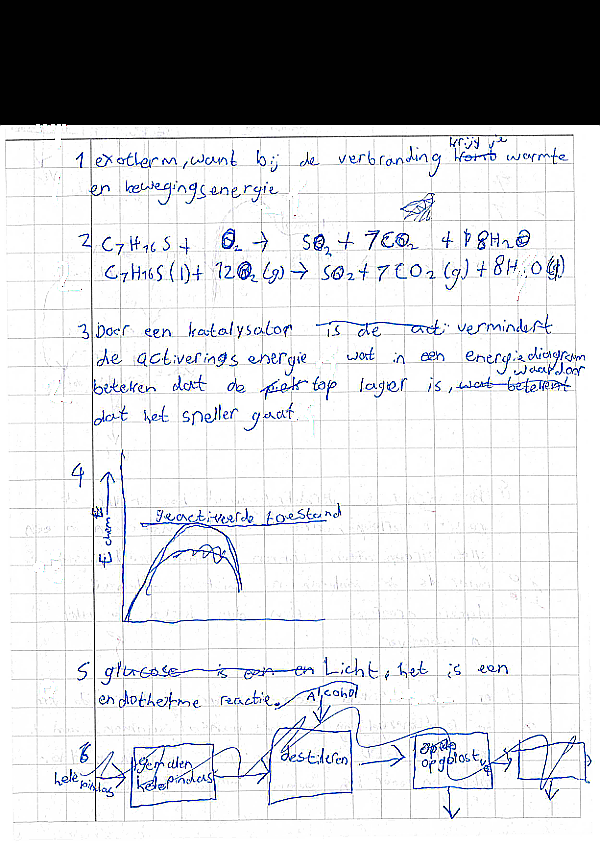 1 exotherm, want bij de verbranding krijg je warmte
en bewegingsenergie
2 C7H16S + O2 → SO2 + 7CO2 + 8H2O
C7H16S (l) + 12O2 (g) → SO2 + 7CO2 (g) + 8H2O (g)
3 Door een katalysator is de acti vermindert
de activerings energie wat in een energiediagram
beteken dat de piek top lager is, wat betekent waardoor
dat het sneller gaat.
4
E chem
geactiveerde toestand
5 glucose is een en Licht, het is een
endotherme reactie.
Alcohol
6
hele pindas
gemalen pindas
destileren
opgelost